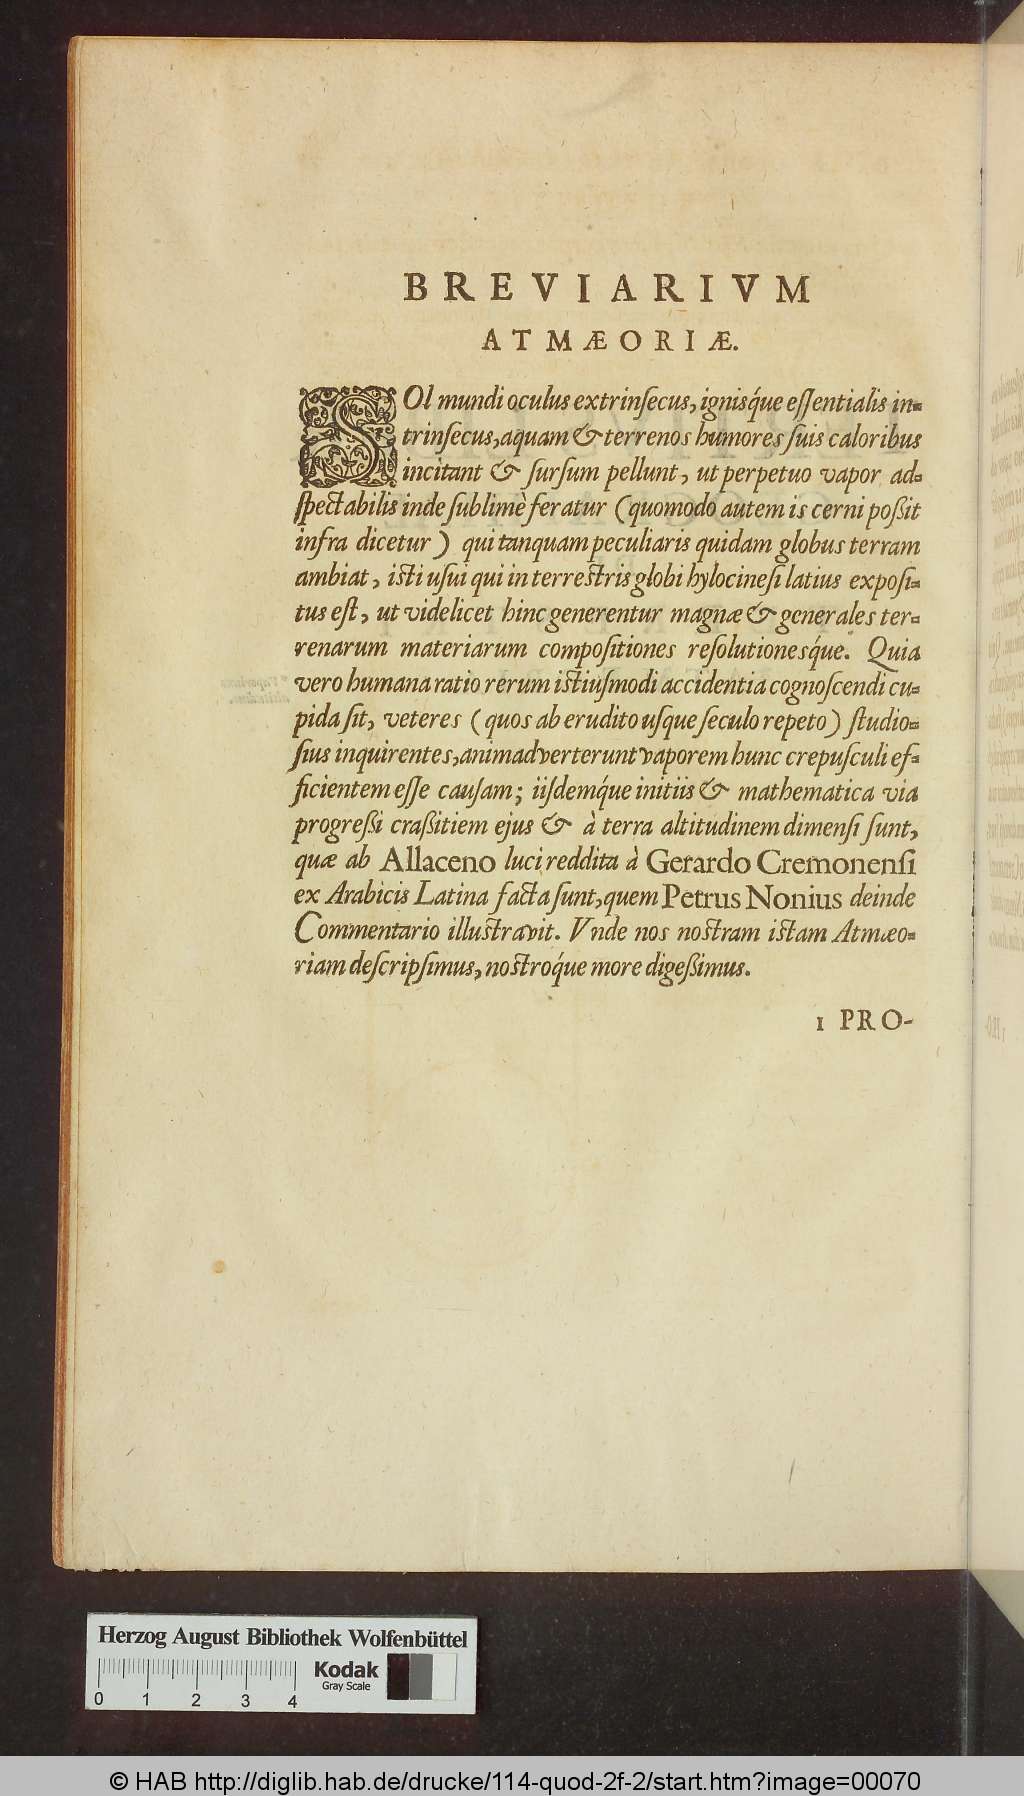 BREVIARIVM
ATMÆORIÆ.
SOl mundi oculus extrinſecus, igniśque eſſentialis in-
trinſecus, aquam & terrenos humores ſuis caloribus
incitant & ſurſum pellunt, ut perpetuo vapor ad-
ſpectabilis inde ſublimè feratur (quomodo autem is cerni poßit
infra dicetur) qui tanquam peculiaris quidam globus terram
ambiat, iſti uſui qui in terreſtris globi hylocineſi latius expoſi-
tus eſt, ut videlicet hinc generentur magnæ & generales ter-
renarum materiarum compoſitiones reſolutioneśque. Quia
vero humana ratio rerum iſtiuſmodi accidentia cognoſcendi cu-
pida ſit, veteres (quos ab erudito uſque ſeculo repeto) ſtudio-
ſius inquirentes, animadverterunt vaporem hunc crepuſculi ef-
ficientem eſſe cauſam; iiſdemq́ue initiis & mathematica via
progreßi craßitiem ejus & à terra altitudinem dimenſi ſunt,
quæ ab Allaceno luci reddita à Gerardo Cremonenſi
ex Arabicis Latina facta ſunt, quem Petrus Nonius deinde
Commentario illuſtravit. Vnde nos noſtram iſtam Atmæo-
riam deſcripſimus, noſtroq́ue more digeßimus.
1 PRO-
Herzog August Bibliothek Wolfenbüttel
Kodak
Gray Scale
0 1 2 3 4
© HAB http://diglib.hab.de/drucke/114-quod-2f-2/start.htm?image=00070